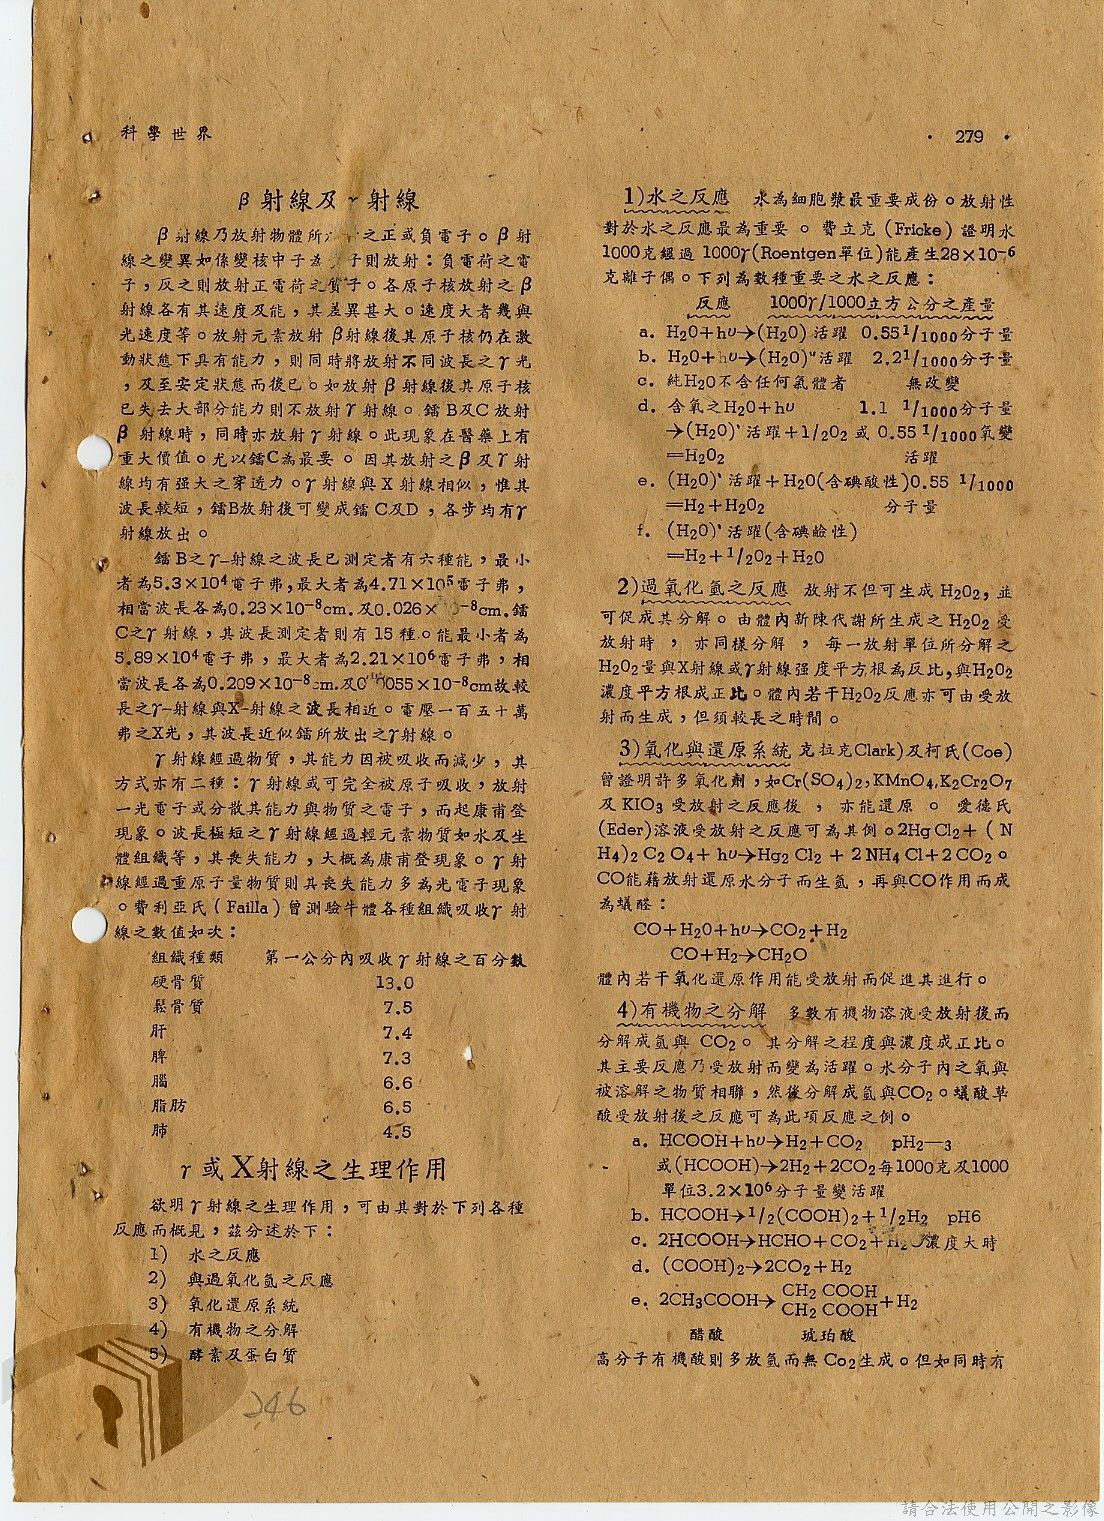 科學世界
· 279 ·
β射線及γ射線
β射線乃放射物體所 之正或負電子。β射
線之變異如係變核中子為 子則放射：負電荷之電
子，反之則放射正電荷之質子。各原子核放射之β
射線各有其速度及能，其差異甚大。速度大者幾與
光速度等。放射元素放射β射線後其原子核仍在激
動狀態下具有能力，則同時將放射不同波長之γ光
，及至安定狀態而後已。如放射β射線後其原子核
已失去大部分能力則不放射γ射線。鐳B及C放射
β射線時，同時亦放射γ射線。此現象在醫藥上有
重大價值。尤以鐳C為最要。因其放射之β及γ射
線均有强大之穿透力。γ射線與X射線相似，惟其
波長較短，鐳B放射後可變成鐳C及D，各步均有γ
射線放出。
鐳B之γ-射線之波長已測定者有六種能，最小
者為5.3×10⁴電子弗，最大者為4.71×10⁵電子弗，
相當波長各為0.23×10⁻⁸cm.及0.026× ⁻⁸cm.鐳
C之γ射線，其波長測定者則有15種。能最小者為
5.89×10⁴電子弗，最大者為2.21×10⁶電子弗，相
當波長各為0.209×10⁻⁸cm.及0 0055×10⁻⁸cm故較
長之γ-射線與X-射線之波長相近。電壓一百五十萬
弗之X光，其波長近似鐳所放出之γ射線。
γ射線經過物質，其能力因被吸收而減少，其
方式亦有二種：γ射線或可完全被原子吸收，放射
一光電子或分散其能力與物質之電子，而起康甫登
現象。波長極短之γ射線經過輕元素物質如水及生
體組織等，其喪失能力，大概為康甫登現象。γ射
線經過重原子量物質則其喪失能力多為光電子現象
。費利亞氏(Failla)曾測驗牛體各種組織吸收γ射
線之數值如次：
組織種類 第一公分內吸收γ射線之百分數
硬骨質 13.0
鬆骨質 7.5
肝 7.4
脾 7.3
腦 6.6
脂肪 6.5
肺 4.5
γ或X射線之生理作用
欲明γ射線之生理作用，可由其對於下列各種
反應而概見，茲分述於下：
1) 水之反應
2) 與過氧化氫之反應
3) 氧化還原系統
4) 有機物之分解
5) 酵素及蛋白質
246
1)水之反應 水為細胞漿最重要成份。放射性
對於水之反應最為重要。費立克(Fricke)證明水
1000克經過1000γ(Roentgen單位)能產生28×10⁻⁶
克離子偶。下列為數種重要之水之反應：
反應 1000γ/1000立方公分之產量
a. H₂O+hυ→(H₂O)活躍 0.55 1/1000分子量
b. H₂O+hυ→(H₂O)"活躍 2.2 1/1000分子量
c. 純H₂O不含任何氣體者 無改變
d. 含氧之H₂O+hυ 1.1 1/1000分子量
→(H₂O)'活躍+1/2O₂ 或 0.55 1/1000氧變
=H₂O₂ 活躍
e. (H₂O)'活躍+H₂O(含碘酸性)0.55 1/1000
=H₂+H₂O₂ 分子量
f. (H₂O)'活躍(含碘鹼性)
=H₂+1/2O₂+H₂O
2)過氧化氫之反應 放射不但可生成H₂O₂，並
可促成其分解。由體內新陳代謝所生成之H₂O₂受
放射時，亦同樣分解，每一放射單位所分解之
H₂O₂量與X射線或γ射線强度平方根為反比，與H₂O₂
濃度平方根成正比。體內若干H₂O₂反應亦可由受放
射而生成，但須較長之時間。
3)氧化與還原系統 克拉克Clark)及柯氏(Coe)
曾證明許多氧化劑，如Cr(SO₄)₂,KMnO₄,K₂Cr₂O₇
及KIO₃受放射之反應後，亦能還原。愛德氏
(Eder)溶液受放射之反應可為其例。2HgCl₂+(N
H₄)₂C₂O₄+hυ→Hg₂Cl₂+2NH₄Cl+2CO₂。
CO能藉放射還原水分子而生氫，再與CO作用而成
為蟻醛：
CO+H₂O+hυ→CO₂+H₂
CO+H₂→CH₂O
體內若干氧化還原作用能受放射而促進其進行。
4)有機物之分解 多數有機物溶液受放射後而
分解成氫與CO₂。其分解之程度與濃度成正比。
其主要反應乃受放射而變為活躍。水分子內之氧與
被溶解之物質相聯，然後分解成氫與CO₂。蟻酸草
酸受放射後之反應可為此項反應之例。
a. HCOOH+hυ→H₂+CO₂ pH2—3
或(HCOOH)→2H₂+2CO₂每1000克及1000
單位3.2×10⁶分子量變活躍
b. HCOOH→1/2(COOH)₂+1/2H₂ pH6
c. 2HCOOH→HCHO+CO₂+H₂O濃度大時
d. (COOH)₂→2CO₂+H₂
e. 2CH₃COOH→CH₂COOH CH₂COOH+H₂
醋酸 琥珀酸
高分子有機酸則多放氫而無Co₂生成。但如同時有
請合法使用公開之影像